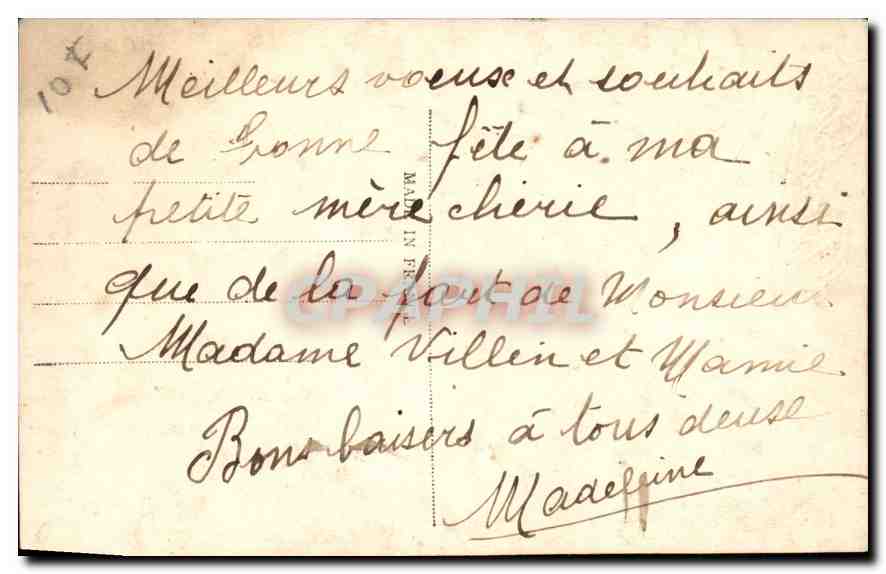 10F
Meilleurs voeux et souhaits
de bonne fête à ma
petite mère chérie, ainsi
que de la part de Monsieur
Madame Villin et Mamie
Bons baisers à tous deux
Madeleine
MADE IN FR
CPAPHIL